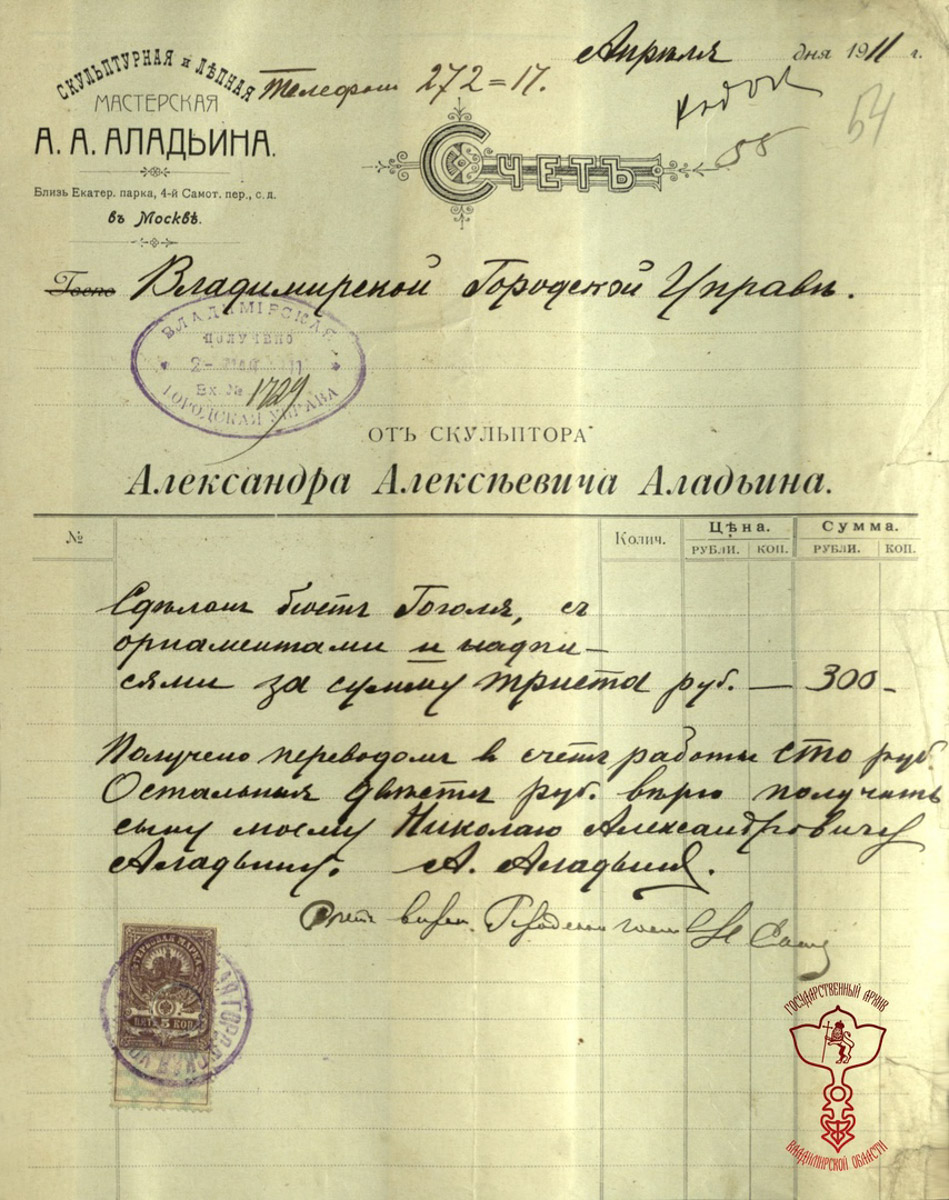 Апреля дня 1911 г.
СКУЛЬПТУРНАЯ и ЛѢПНАЯ
МАСТЕРСКАЯ
А. А. АЛАДЬИНА.
Близь Екатер. парка, 4-й Самот. пер., с. д.
въ Москвѣ.
Телефон 272=17.
54
55
СЧЕТЪ
Госпо Владимирской Городской Управѣ.
ВЛАДИМІРСКАЯ
ПОЛУЧЕНО
2- МАЙ 11
Вх. № 1729
ГОРОДСКАЯ УПРАВА
ОТЪ СКУЛЬПТОРА
Александра Алексѣевича Аладьина.
№ Колич. Цѣна. Сумма.
РУБЛИ. КОП. РУБЛИ. КОП.
Сдѣлан бюстъ Гоголя, съ
орнаментами и надпи-
сями за сумму триста руб. — 300-
Получено переводомъ в счетъ работы сто руб.
Остальныя двѣсти руб. вѣрю получить
сыну моему Николаю Александровичу
Аладьину. А. Аладьинъ.
Счетъ вѣрен. Городской
ГЕРБОВАЯ МАРКА
ПЯТЬ 5 КОП
ГОСУДАРСТВЕННЫЙ АРХИВ
ВЛАДИМИРСКОЙ ОБЛАСТИ